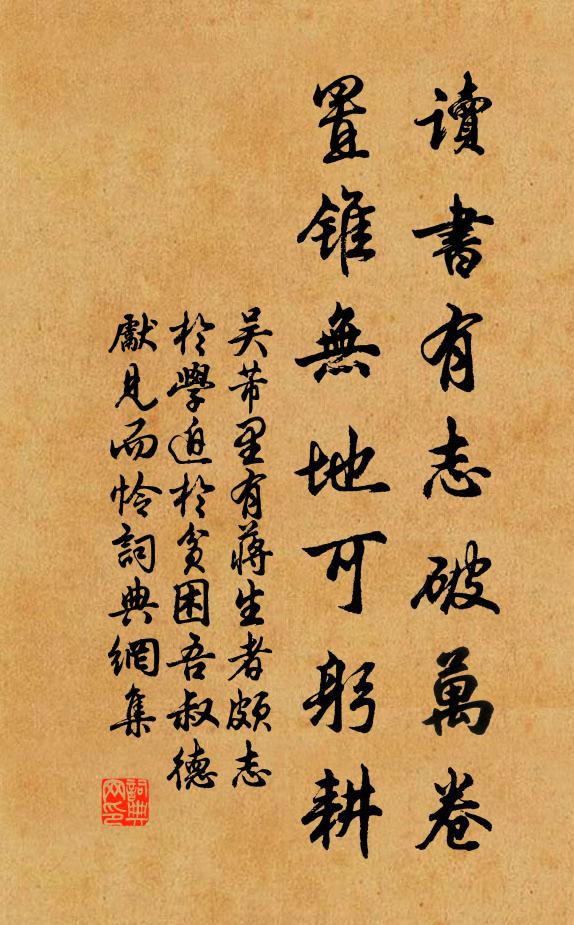 讀書有志破萬卷
置錐無地可躬耕
吴芾里有蔣生者頗志
於學迫於貧困吾叔德
獻見而怜詞典網集
詞典網印